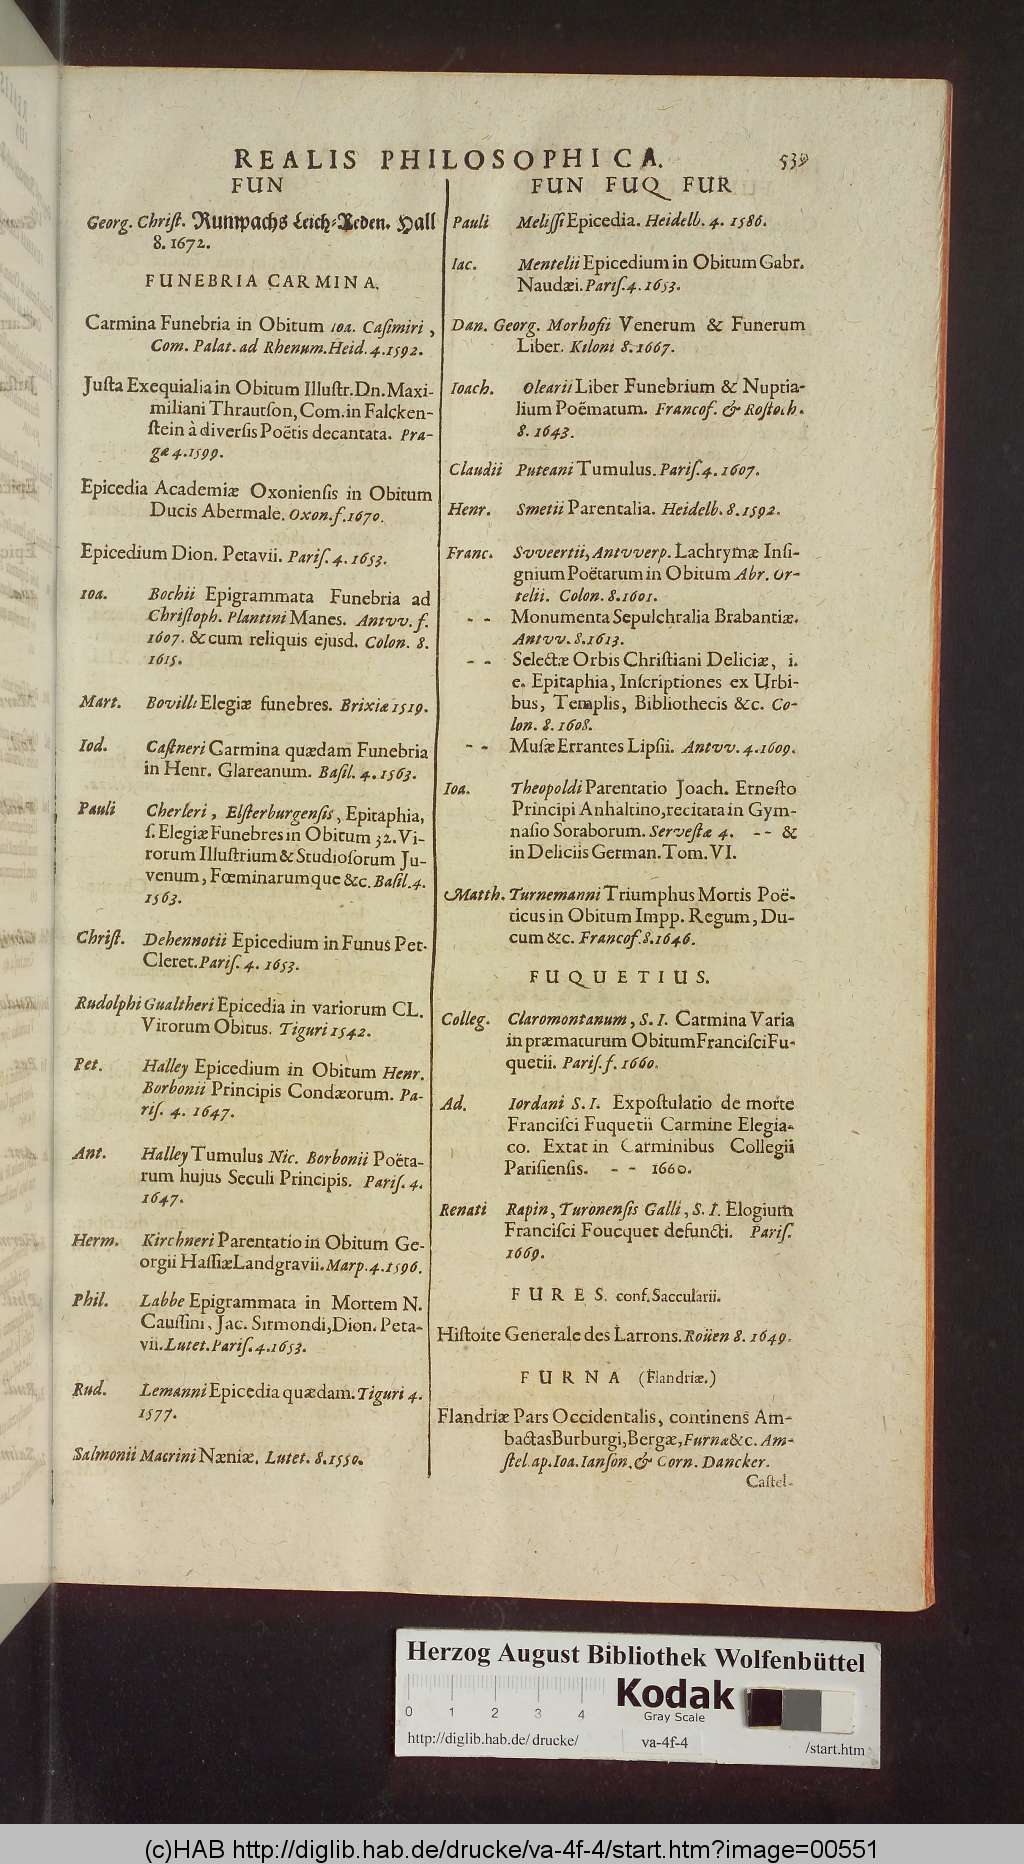 REALIS PHILOSOPHICA. 539
FUN
Georg. Chriſt. Runpachs Leich-Reden. Hall
8. 1672.
FUNEBRIA CARMINA.
Carmina Funebria in Obitum Ioa. Caſimiri,
Com. Palat. ad Rhenum. Heid. 4. 1592.
Juſta Exequialia in Obitum Illuſtr. Dn. Maxi-
miliani Thrautſon, Com. in Falcken-
ſtein à diverſis Poëtis decantata. Pra-
gæ 4. 1599.
Epicedia Academiæ Oxonienſis in Obitum
Ducis Abermale. Oxon. f. 1670.
Epicedium Dion. Petavii. Pariſ. 4. 1653.
Ioa. Bochii Epigrammata Funebria ad
Chriſtoph. Plantini Manes. Antvv. f.
1607. & cum reliquis ejusd. Colon. 8.
1615.
Mart. Bovilli Elegiæ funebres. Brixiæ 1519.
Iod. Caſtneri Carmina quædam Funebria
in Henr. Glareanum. Baſil. 4. 1563.
Pauli Cherleri, Elſterburgenſis, Epitaphia,
ſ. Elegiæ Funebres in Obitum 32. Vi-
rorum Illuſtrium & Studioſorum Ju-
venum, Fœminarumque &c. Baſil. 4.
1563.
Chriſt. Dehennotii Epicedium in Funus Pet.
Cleret. Pariſ. 4. 1653.
Rudolphi Gualtheri Epicedia in variorum CL.
Virorum Obitus. Tiguri 1542.
Pet. Halley Epicedium in Obitum Henr.
Borbonii Principis Condæorum. Pa-
riſ. 4. 1647.
Ant. Halley Tumulus Nic. Borbonii Poëta-
rum hujus Seculi Principis. Pariſ. 4.
1647.
Herm. Kirchneri Parentatio in Obitum Ge-
orgii Haſſiæ Landgravii. Marp. 4. 1596.
Phil. Labbe Epigrammata in Mortem N.
Cauſſini, Jac. Sirmondi, Dion. Peta-
vii. Lutet. Pariſ. 4. 1653.
Rud. Lemanni Epicedia quædam. Tiguri 4.
1577.
Salmonii Macrini Næniæ. Lutet. 8. 1550.
FUN FUQ FUR
Pauli Meliſſi Epicedia. Heidelb. 4. 1586.
Iac. Mentelii Epicedium in Obitum Gabr.
Naudæi. Pariſ. 4. 1653.
Dan. Georg. Morhofii Venerum & Funerum
Liber. Kiloni 8. 1667.
Ioach. Olearii Liber Funebrium & Nuptia-
lium Poëmatum. Francof. & Roſtoch.
8. 1643.
Claudii Puteani Tumulus. Pariſ. 4. 1607.
Henr. Smetii Parentalia. Heidelb. 8. 1592.
Franc. Svveertii, Antvverp. Lachrymæ Inſi-
gnium Poëtarum in Obitum Abr. Or-
telii. Colon. 8. 1601.
- - Monumenta Sepulchralia Brabantiæ.
Antvv. 8. 1613.
- - Selectæ Orbis Chriſtiani Deliciæ, i.
e. Epitaphia, Inſcriptiones ex Urbi-
bus, Templis, Bibliothecis &c. Co-
lon. 8. 1608.
- - Muſæ Errantes Lipſii. Antvv. 4. 1609.
Ioa. Theopoldi Parentatio Joach. Erneſto
Principi Anhaltino, recitata in Gym-
naſio Soraborum. Serveſtæ 4. - - &
in Deliciis German. Tom. VI.
Matth. Turnemanni Triumphus Mortis Poë-
ticus in Obitum Impp. Regum, Du-
cum &c. Francof. 8. 1646.
FUQUETIUS.
Colleg. Claromontanum, S. I. Carmina Varia
in præmaturum Obitum Franciſci Fu-
quetii. Pariſ. f. 1660.
Ad. Iordani S. I. Expoſtulatio de morte
Franciſci Fuquetii Carmine Elegia-
co. Extat in Carminibus Collegii
Pariſienſis. - - 1660.
Renati Rapin, Turonenſis Galli, S. I. Elogium
Franciſci Foucquet defuncti. Pariſ.
1669.
FURES. conf. Saccularii.
Hiſtoire Generale des Larrons. Roüen 8. 1649.
FURNA (Flandriæ.)
Flandriæ Pars Occidentalis, continens Am-
bactas Burburgi, Bergæ, Furnæ &c. Am-
ſtel. ap. Ioa. Ianſon. & Corn. Dancker.
Caſtel-
Herzog August Bibliothek Wolfenbüttel
0 1 2 3 4
Kodak
Gray Scale
http://diglib.hab.de/drucke/ va-4f-4 /start.htm
(c)HAB http://diglib.hab.de/drucke/va-4f-4/start.htm?image=00551